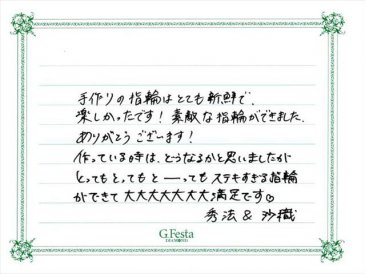 手作りの指輪はとても新鮮で、
楽しかったです！素敵な指輪ができました。
ありがとうございます！
作っている時は、どうなるかと思いましたが
とってもとってもと――ってもステキすぎる指輪
ができて大大大大大大大満足です♡
秀法 & 沙織
G.Festa
DIAMOND